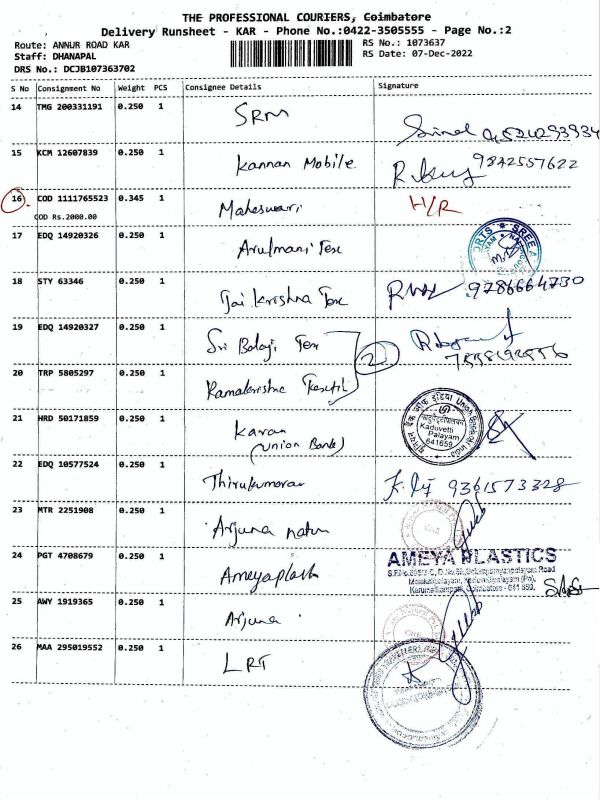 THE PROFESSIONAL COURIERS, Coimbatore
Delivery Runsheet - KAR - Phone No.:0422-3505555 - Page No.:2
Route: ANNUR ROAD KAR
RS No.: 1073637
Staff: DHANAPAL
RS Date: 07-Dec-2022
DRS No.: DCJB107363702
S No Consignment No Weight PCS Consignee Details Signature
14 TMG 200331191 0.250 1 SRM
15 KCM 12607839 0.250 1 Kannan Mobile 9842557622
16 COD 1111765523 0.345 1 Maheswari H/R
COD Rs.2000.00
17 EDQ 14920326 0.250 1 Arulmani Tex
18 STY 63346 0.250 1 Jai Krishna Tex 9786664730
19 EDQ 14920327 0.250 1 Sri Balaji Tex
2
20 TRP 5805297 0.250 1 Ramakrishna
21 HRD 50171859 0.250 1 Karan
(Union Bank)
Union Bank of India
Kaduvetti
Palayam
641659
22 EDQ 10577524 0.250 1 Thirukumaran 9361573328
23 MTR 2251908 0.250 1 Arjuna
24 PGT 4708679 0.250 1 Ameyaplash
AMEYA PLASTICS
Coimbatore - 641 659.
25 AWY 1919365 0.250 1 Arjuna
26 MAA 295019552 0.250 1 LRT